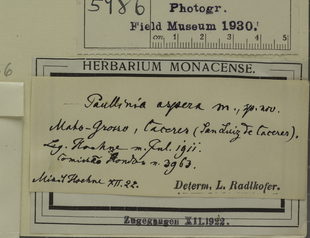 5986
Photogr.
Field Museum 1930.
cm. 1 2 3 4 5
6
HERBARIUM MONACENSE.
Paullinia aspera m., sp. nov.
Mato-Grosso, Caceres (San Luiz de Caceres).
Leg. Hoehne m. Jul. 1911.
Comissão Rondon n. 3963.
Misit Hoehne XII. 22.
Determ. L. Radlkofer.
Zugegangen XII.1922.